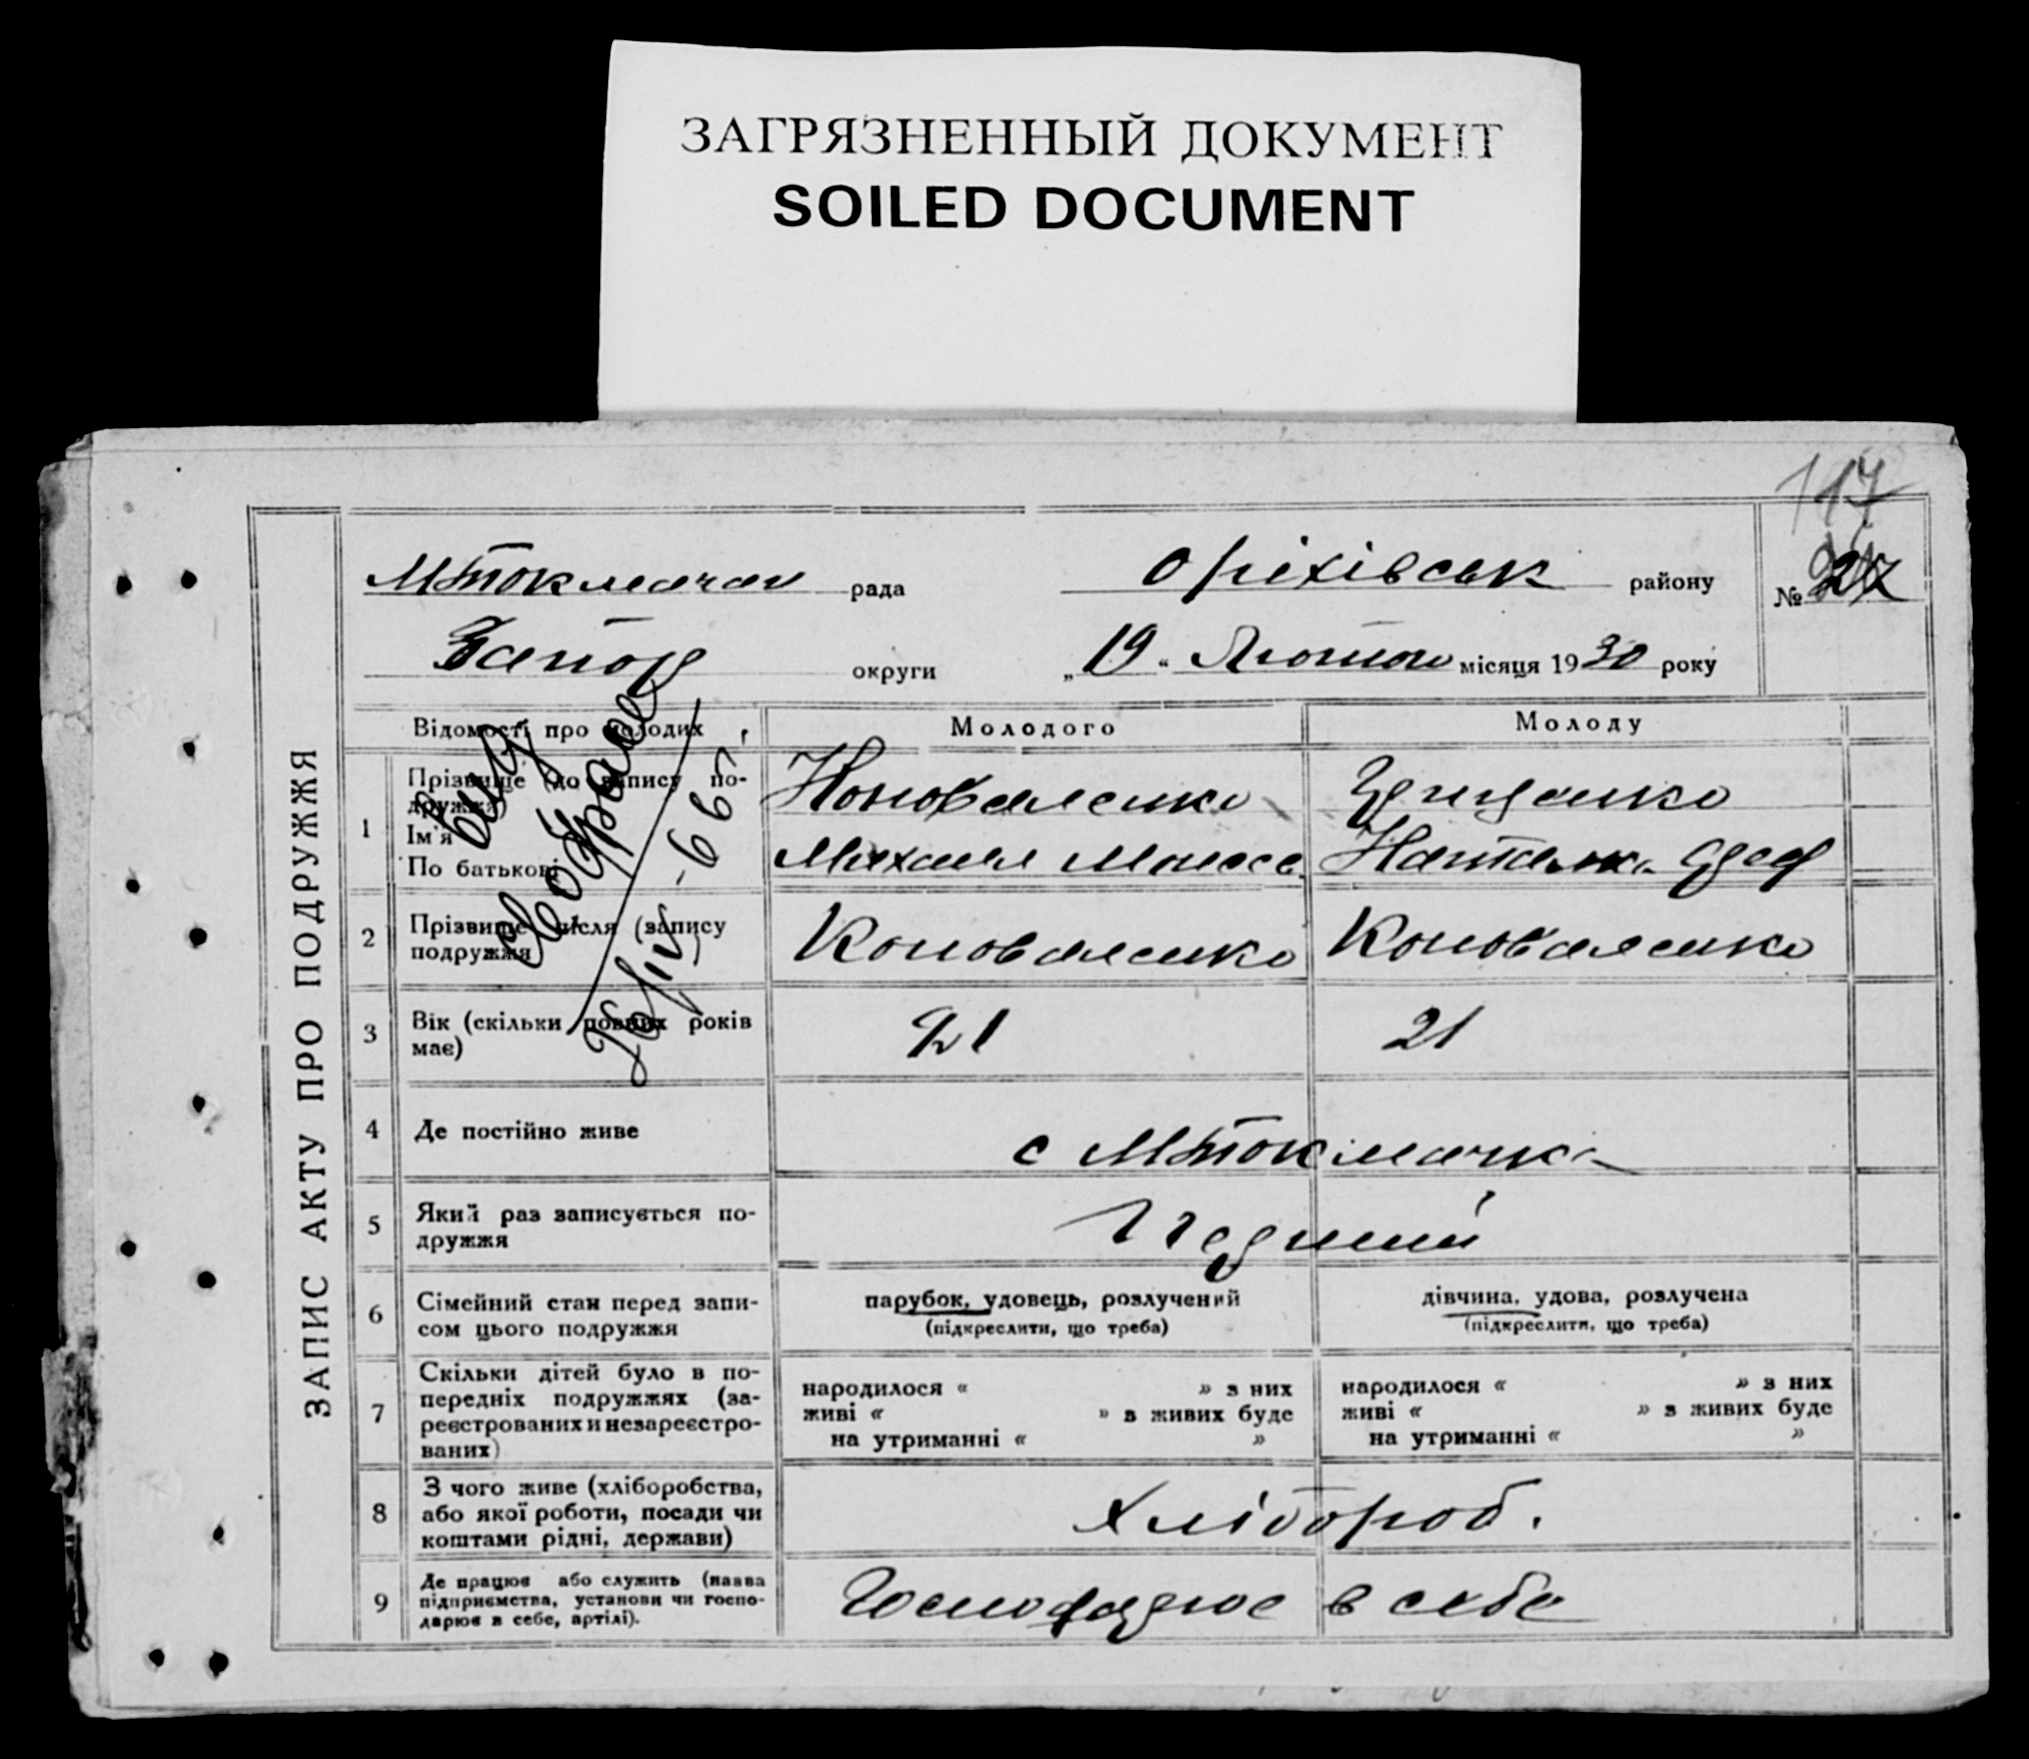 ЗАГРЯЗНЕННЫЙ ДОКУМЕНТ
SOILED DOCUMENT
117
ЗАПИС АКТУ ПРО ПОДРУЖЖЯ
МТокмачан рада Оріхівськ району № 27
Запор округи „19“ Лютого місяця 1930 року
Відомості про молодих Молодого Молоду
1 Прізвище (до запису по-
дружжя)
Ім'я
По батькові
Коноваленко Гриценко
Михаил Наталка
2 Прізвище після (запису
подружжя)
Коноваленко Коноваленко
3 Вік (скільки повних років
має)
21 21
4 Де постійно живе с МТокмачка
5 Який раз записується по-
дружжя
6 Сімейний стан перед запи-
сом цього подружжя
парубок, удовець, розлучений
(підкреслити, що треба)
дівчина, удова, розлучена
(підкреслити, що треба)
7 Скільки дітей було в по-
передніх подружжях (за-
реєстрованих и незареєстро-
ваних)
народилося « » з них
живі « » з живих буде
на утриманні « »
народилося « » з них
живі « » з живих буде
на утриманні « »
8 З чого живе (хліборобства,
або якої роботи, посади чи
коштами рідні, держави)
Хлібороб.
9 Де працює або служить (назва
підприємства, установи чи госпо-
дарює в себе, артілі).
Господарює в себе